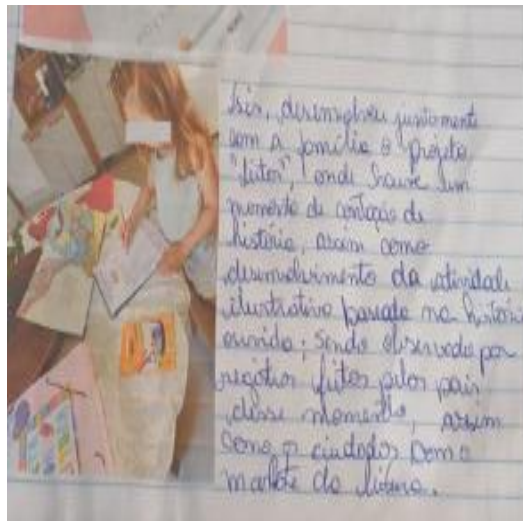 Isis, desenvolveu juntamente
com a família o projeto
"leitor", onde houve um
momento de contação de
história, assim como
desenvolvimento da atividade
ilustrativa baseada na história
ouvida; Sendo observado por
registros feitos pelos pais
desse momento, assim
como o cuidados com o